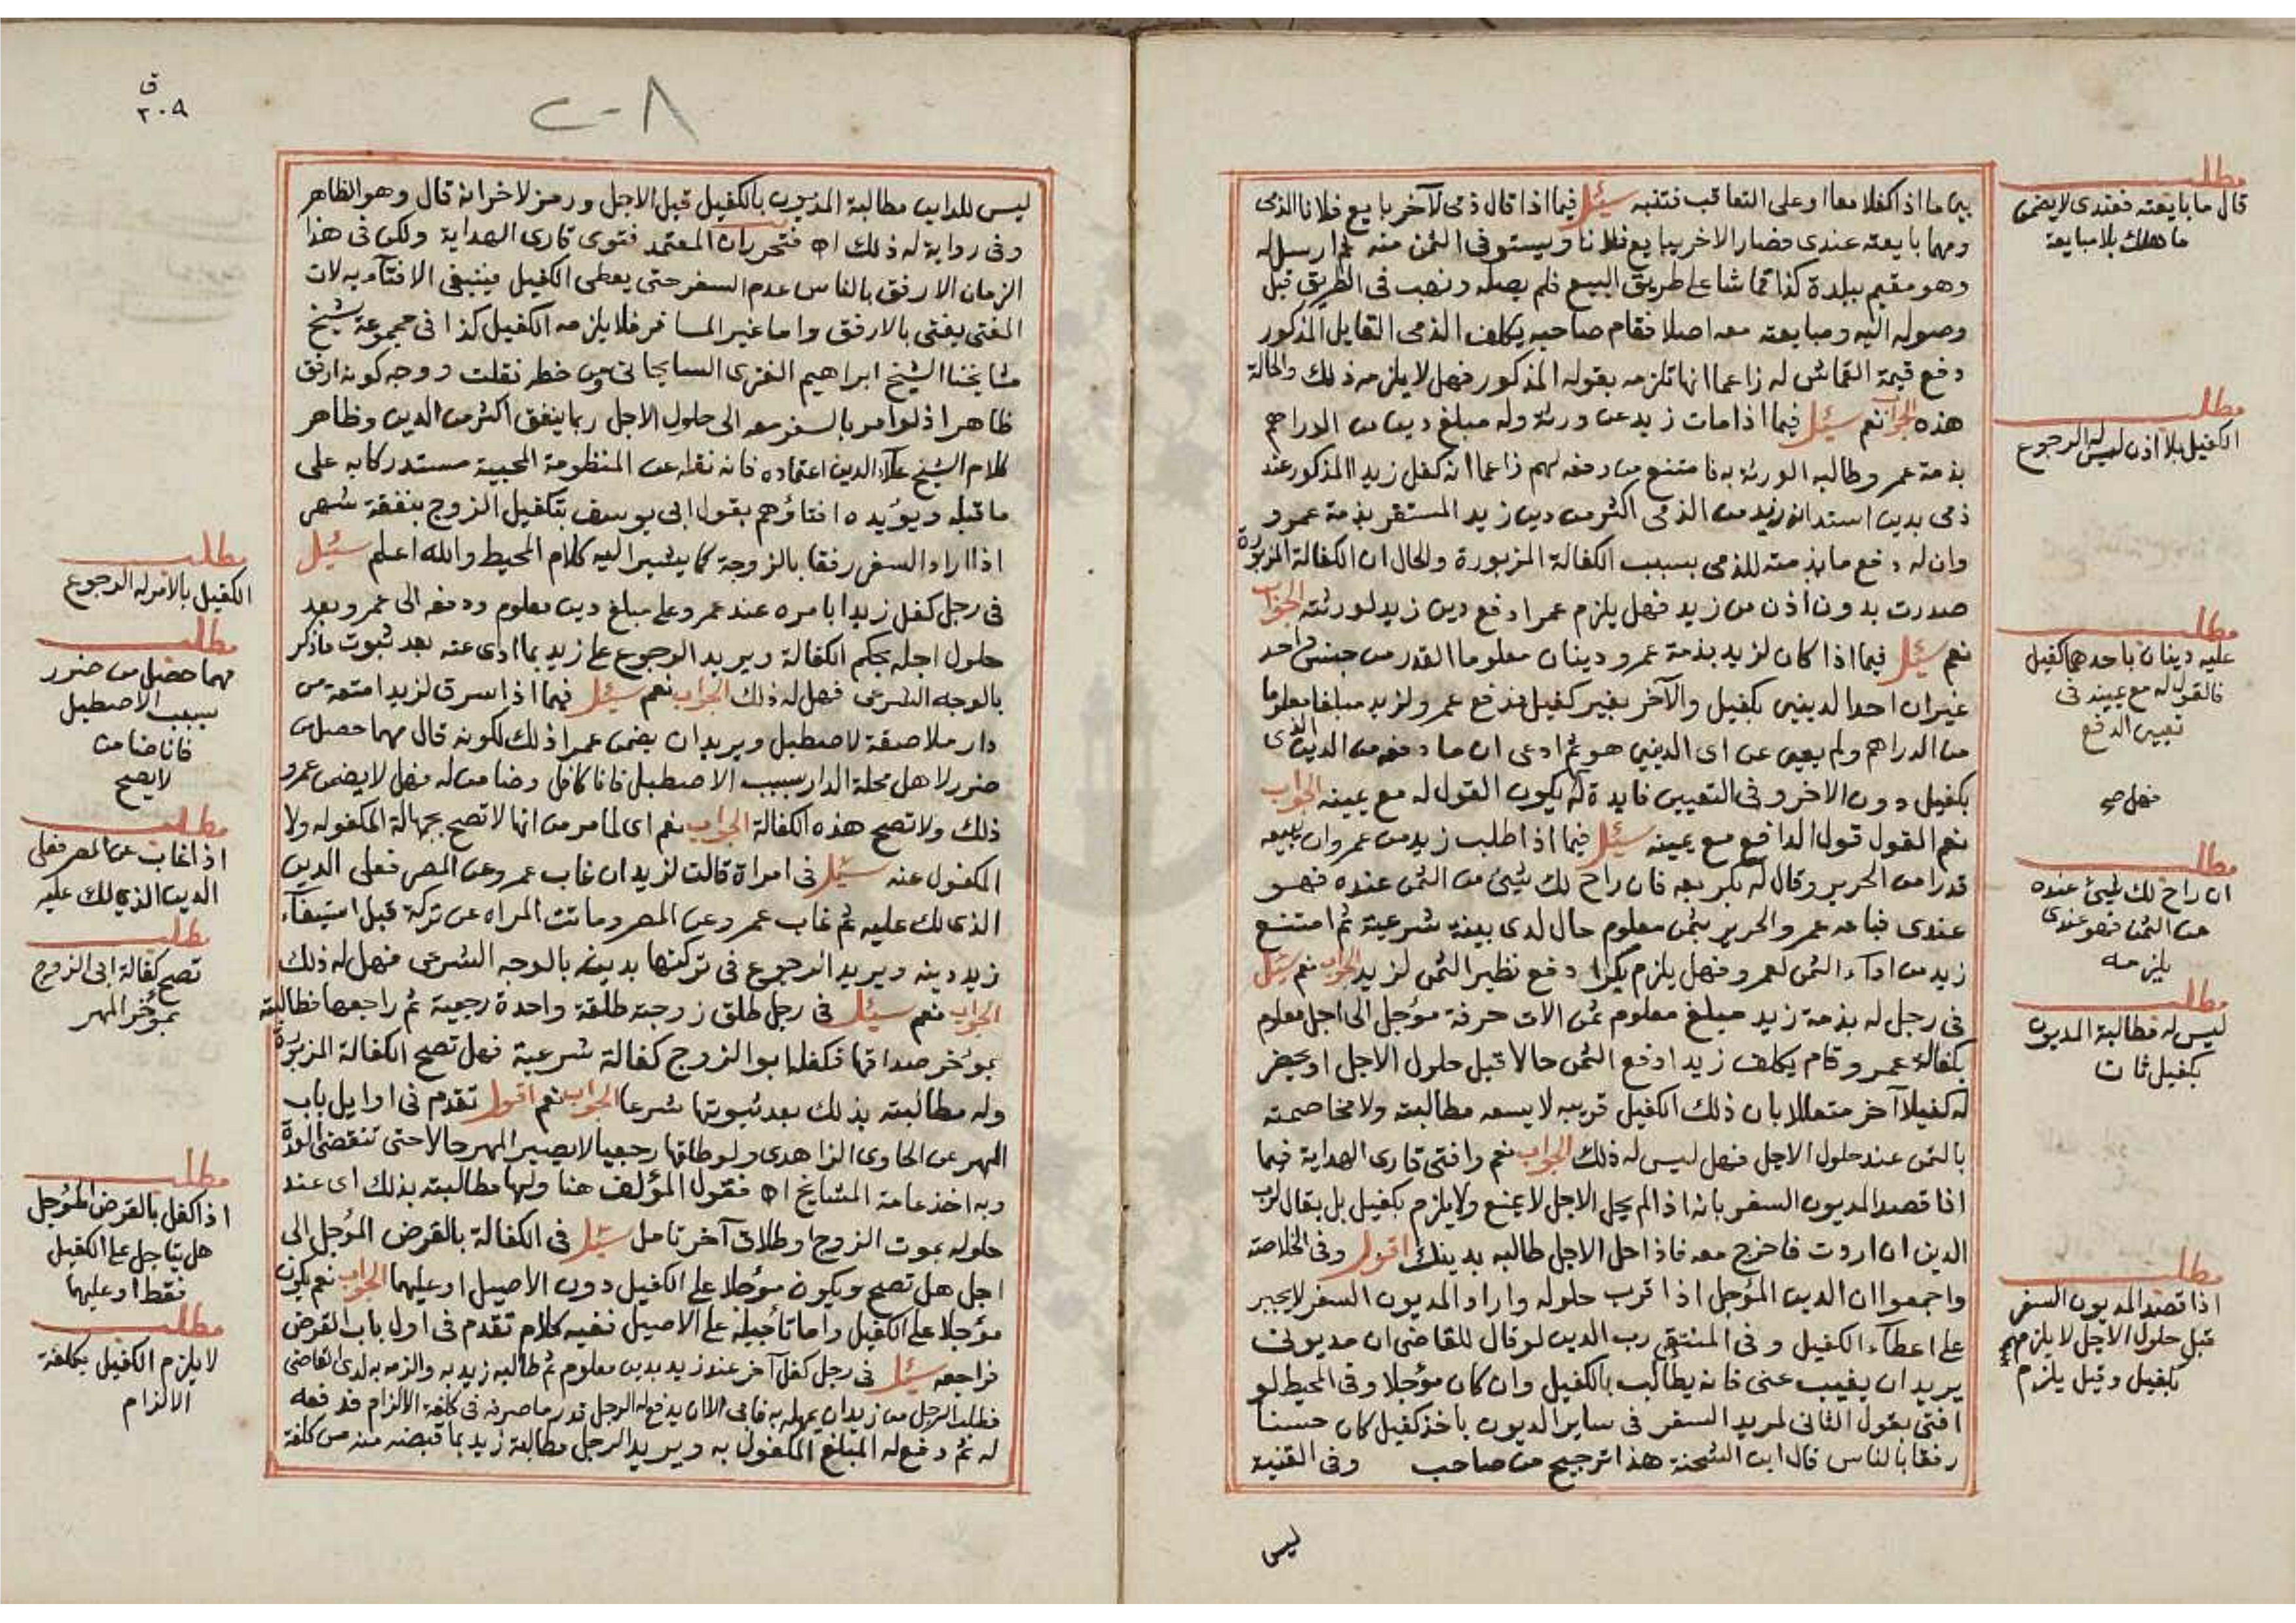 مطلب
قال ما بايعته فعندي لا يضمن
ما هلك بلا مبايعة
مطلب
الكفيل بلا اذن ليس له الرجوع
مطلب
عليه دينان باحدهما كفيل
فالقول له مع يمينه في
تعيين الدفع
مطلب
ان راح لك شيئ عنده
من الثمن فهو عندي
يلزمه
مطلب
ليس له مطالبة المديون
بكفيل ثان
مطلب
اذا قصد المديون السفر
قبل حلول الاجل لا يلزمه
بكفيل وقيل يلزم
بين ما اذا كفلا معا او على التعاقب فتنبه سئل فيما اذا قال ذمي لآخر بايع فلانا الذمي
ومهما بايعته عندي فصار الاخر يبايع فلانا ويستوفي الثمن منه ثم ارسل له
وهو مقيم ببلدة كذا قماشا على طريق البيع فلم يصله ونهب في الطريق قبل
وصوله اليه ومبايعته معه اصلا فقام صاحبه يكلف الذمي القايل المذكور
دفع قيمة القماش له زاعما انها تلزمه بقوله المذكور فهل لا يلزمه ذلك والحالة
هذه الجواب نعم سئل فيما اذا مات زيد عن ورثة وله مبلغ دين من الدراهم
بذمة عمرو وطالبه الورثة به فامتنع من دفعه لهم زاعما انه كفل زيدا المذكور عند
ذمي بدين استدانه زيد من الذمي اكثر من دين زيد المستقر بذمة عمرو
وان له دفع ما بذمته للذمي بسبب الكفالة المزبورة والحال ان الكفالة المزبورة
صدرت بدون اذن من زيد فهل يلزم عمرا دفع دين زيد لورثته الجواب
نعم سئل فيما اذا كان لزيد بذمة عمرو دينان معلوما القدر من جنس واحد
غير ان احد الدينين بكفيل والآخر بغير كفيل فدفع عمرو لزيد مبلغا معلوما
من الدراهم ولم يعين عن اي الدينين هو ثم ادعى ان ما دفعه من الدين الذي
بكفيل دون الاخر وفي التعيين فايدة له يكون القول له مع يمينه الجواب
نعم القول قول الدافع مع يمينه سئل فيما اذا طلب زيد من عمرو ان يبيعه
قدرا من الحرير وقال له بكر بعه فان راح لك شيئ من الثمن عنده فهو
عندي فباعه عمرو الحرير بثمن معلوم حال لدى بينة شرعية ثم امتنع
زيد من اداء الثمن لعمرو فهل يلزم بكرا دفع نظير الثمن لزيد الجواب نعم سئل
في رجل له بذمة زيد مبلغ معلوم ثمن الات حرفة مؤجل الى اجل معلوم
بكفالة عمرو وقام يكلف زيدا دفع الثمن حالا قبل حلول الاجل او يحضر
له كفيلا آخر متعللا بان ذلك الكفيل قريبه لا يسعه مطالبته ولا مخاصمته
بالثمن عند حلول الاجل فهل ليس له ذلك الجواب نعم وافتى قاري الهداية فيما
اذا قصد المديون السفر بانه اذا لم يحل الاجل لا يمنع ولا يلزم بكفيل بل يقال لرب
الدين ان اردت فاخرج معه فاذا حل الاجل طالبه بدينك اقول وفي الخلاصة
واجمعوا ان الدين المؤجل اذا قرب حلوله واراد المديون السفر لا يجبر
على اعطاء الكفيل وفي المنتقى رب الدين لو قال للقاضي ان مديوني
يريد ان يغيب عني فانه يطالب بالكفيل وان كان مؤجلا وفي المحيط لو
افتى بقول الثاني لمريد السفر في ساير الديون باخذ كفيل كان حسنا
رفقا بالناس قال ابن الشحنة هذا ترجيح من صاحب وفي القنية
ليس
ق
٢٠٨
٢٠٨
ليس للداين مطالبة المديون بالكفيل قبل الاجل ورمز لاخر انه قال وهو الظاهر
وفي رواية له ذلك اه فتحرر ان المعتمد فتوى قاري الهداية ولكن في هذا
الزمان الارفق بالناس عدم السفر حتى يعطي الكفيل فينبغي الافتاء به لان
المفتي يفتي بالارفق واما غير المسافر فلا يلزمه الكفيل كذا في مجموعة شيخ
مشايخنا الشيخ ابراهيم الغزي السايحاني ومن خطه نقلت ووجه كونه ارفق
ظاهر اذ لو امر بالسفر معه الى حلول الاجل ربما ينفق اكثر من الدين وظاهر
كلام الشيخ علاء الدين اعتماده فانه نقله عن المنظومة المحبية مستدركا به على
ما قبله ويؤيده افتاؤهم بقول ابي يوسف بتكفيل الزوج بنفقة شهر
اذا اراد السفر رفقا بالزوجة كما يشير اليه كلام المحيط والله اعلم سئل
في رجل كفل زيدا بامره عند عمرو على مبلغ دين معلوم ودفعه الى عمرو بعد
حلول اجله بحكم الكفالة ويريد الرجوع على زيد بما ادى عنه بعد ثبوت ما ذكر
بالوجه الشرعي فهل له ذلك الجواب نعم سئل فيما اذا سرق لزيد امتعة من
دار ملاصقة لاصطبل ويريد ان يضمن عمرا ذلك لكونه قال مهما حصل من
ضرر لاهل محلة الدار بسبب الاصطبل فانا كافل وضامن له فهل لا يضمن عمرو
ذلك ولا تصح هذه الكفالة الجواب نعم اي لما مر من انها لا تصح بجهالة المكفول له ولا
المكفول عنه سئل في امراة قالت لزيد ان غاب عمرو عن المصر فعلي الدين
الذي لك عليه ثم غاب عمرو عن المصر وماتت المراه عن تركة قبل استيفاء
زيد دينه ويريد الرجوع في تركتها بدينه بالوجه الشرعي فهل له ذلك
الجواب نعم سئل في رجل طلق زوجته طلقة واحدة رجعية ثم راجعها فطالبته
بمؤخر صداقها فكفله ابو الزوج كفالة شرعية فهل تصح الكفالة المزبورة
وله مطالبته بذلك بعد ثبوتها شرعا الجواب نعم اقول تقدم في اوايل باب
المهر عن الحاوي الزاهدي ولو طلقها رجعيا لا يصير المهر حالا حتى تنقضي العدة
وبه اخذ عامة المشايخ اه فقول المؤلف هنا ولها مطالبته بذلك اي عند
حلوله بموت الزوج او طلاق آخر تامل سئل في الكفالة بالقرض المؤجل الى
اجل هل تصح ويكون مؤجلا على الكفيل دون الاصيل او عليهما الجواب نعم يكون
مؤجلا على الكفيل واما تأجيله على الاصيل ففيه كلام تقدم في اول باب القرض
فراجعه سئل في رجل كفل آخر عند زيد بدين معلوم ثم طالبه زيد به والزمه به لدى القاضي
فطلب الرجل من زيد ان يمهله به فابى الا ان يدفع له الرجل قدر ما صرفه في كلفة الالزام فدفعه
له ثم دفع له المبلغ المكفول به ويريد الرجل مطالبة زيد بما قبضه منه من كلفة
مطلب
الكفيل بالامر له الرجوع
مطلب
مهما حصل من ضرر
بسبب الاصطبل
فانا ضامن
لا يصح
مطلب
اذا غاب عن المصر فعلي
الدين الذي لك عليه
مطلب
تصح كفالة ابي الزوج
بمؤخر المهر
مطلب
اذا كفل بالقرض المؤجل
هل يتاجل على الكفيل
فقط او عليهما
مطلب
لا يلزم الكفيل بكلفة
الالزام